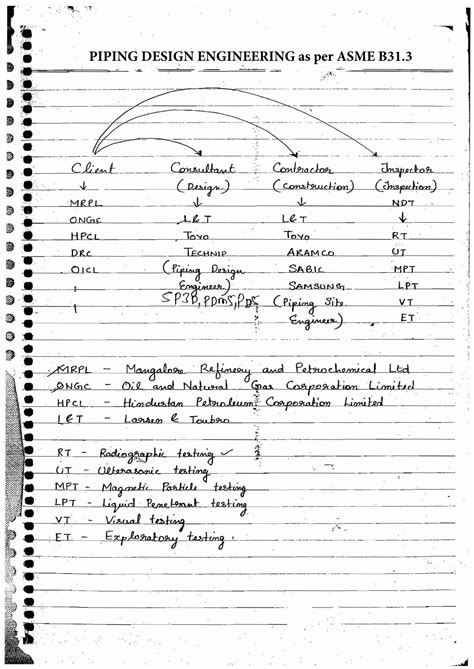 PIPING DESIGN ENGINEERING as per ASME B31.3
Client Consultant Contractor Inspector
↓ (Design) (Construction) (Inspection)
MRPL ↓ ↓ NDT
ONGC L&T L&T ↓
HPCL Toyo Toyo RT
DRC TECHNIP ARAMCO UT
OICL (Piping Design SABIC MPT
Engineer) SAMSUNG LPT
SP3D, PDMS, PDS (Piping Site VT
Engineer) ET
MRPL - Mangalore Refinery and Petrochemical Ltd
ONGC - Oil and Natural Gas Corporation Limited
HPCL - Hindustan Petroleum Corporation Limited
L&T - Larsen & Toubro
RT - Radiographic testing ✓
UT - Ulterasonic testing
MPT - Magnetic Particle testing
LPT - Liquid Penetrant testing
VT - Visual testing
ET - Exploratory testing